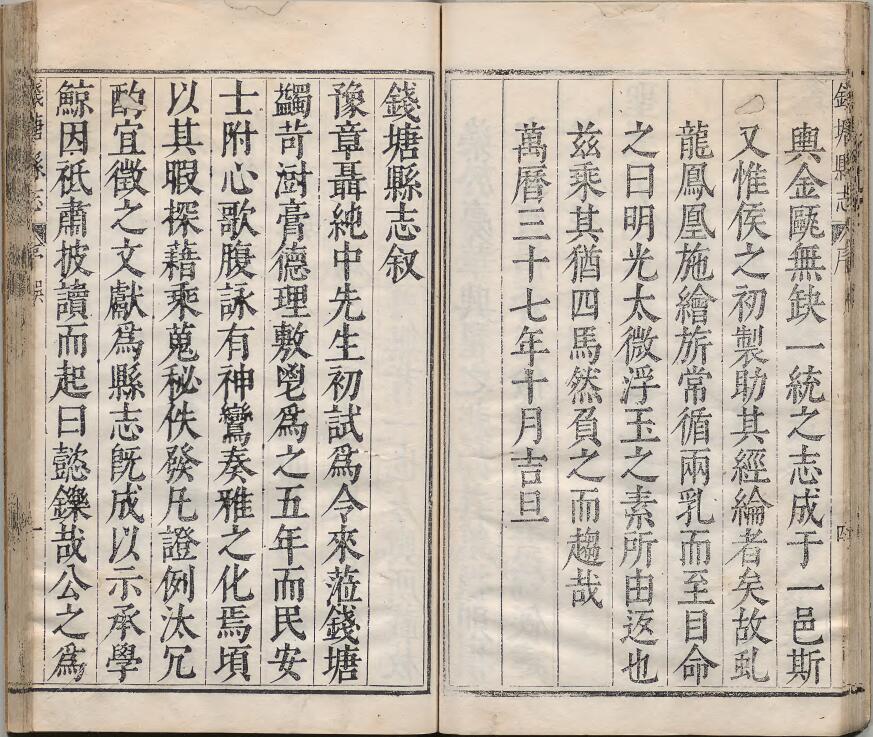 輿金甌無缺一統之志成于一邑斯
又惟侯之初製助其經綸者矣故虬
龍鳳凰施繪旂常循兩乳而至目命
之曰明光太微浮玉之素所由返也
兹乘其猶四馬然負之而趨哉
萬曆三十七年十月吉旦
錢塘縣志叙
豫章聶純中先生初試爲令來蒞錢塘
蠲苛澍膏德理敷鬯爲之五年而民安
士附心歌腹詠有神鸞奏雅之化焉頃
以其暇探藉乘蒐秘佚發凡證例汰冗
酌宜徵之文獻爲縣志旣成以示承學
鯨因祗肅披讀而起曰懿鑠哉公之爲
錢塘縣志